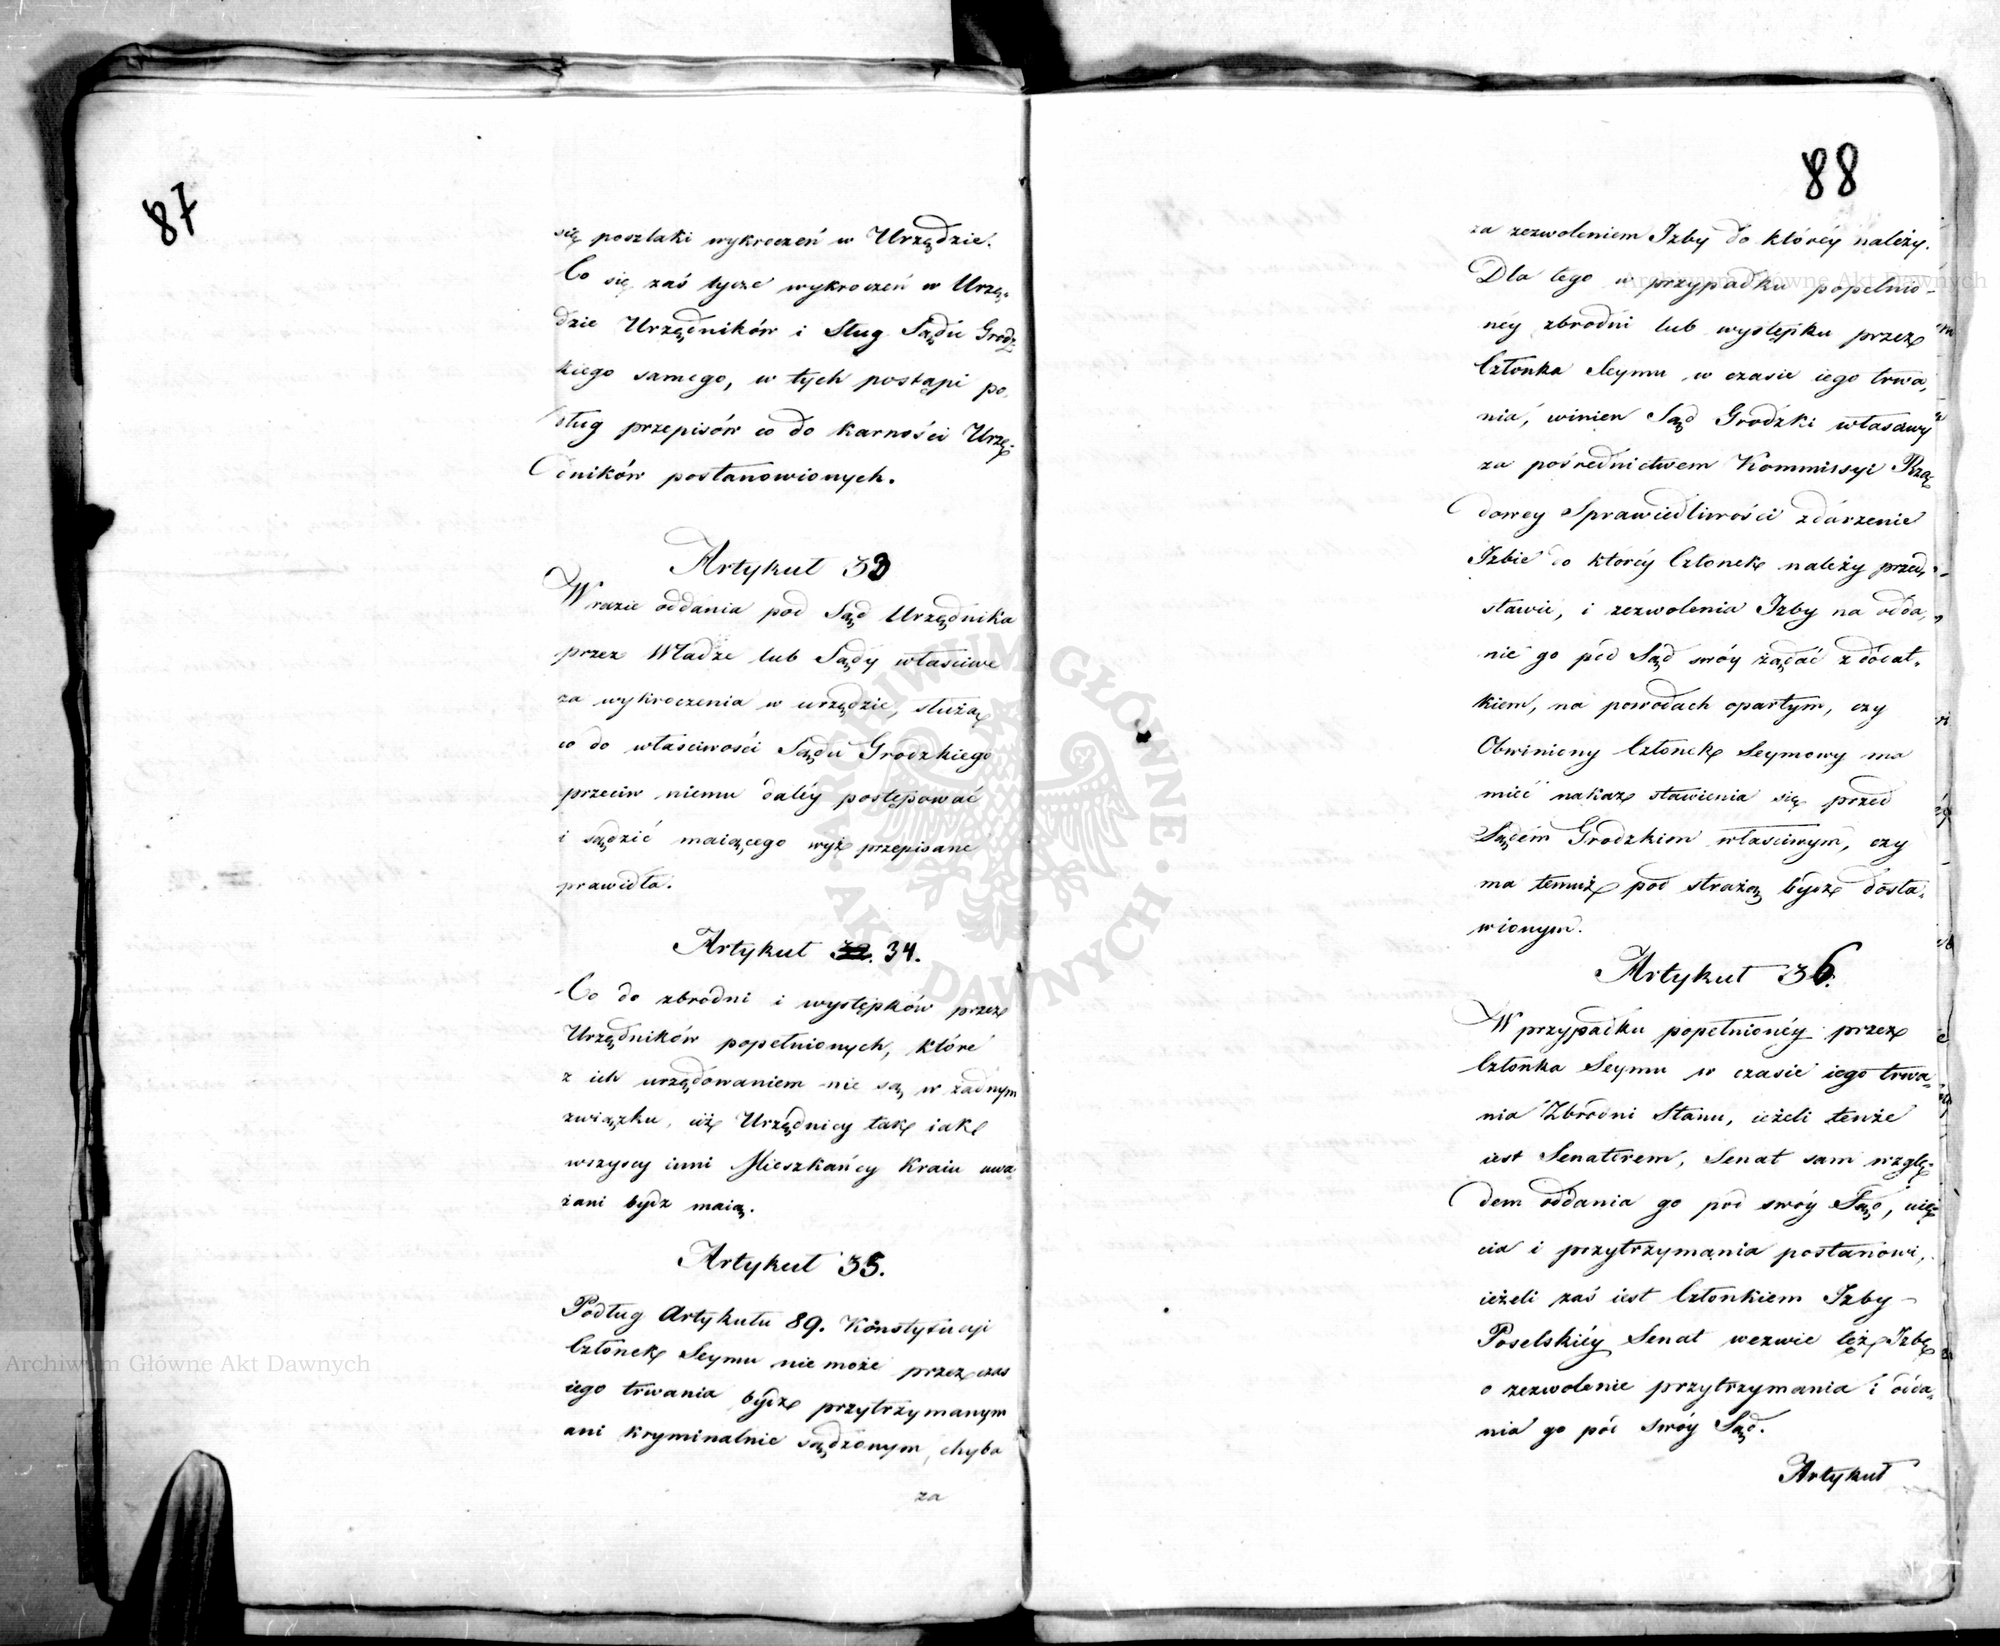 87
się poszlaki wykroczeń w Urzędzie.
Co się zaś tycze wykroczeń w Urzę-
dzie Urzędników i Sług Sądu Grodz-
kiego samego, w tych postąpi po-
dług przepisów co do karności Urzę-
dników postanowionych.
Artykuł 33
W razie oddania pod Sąd Urzędnika
przez Władze lub Sądy właściwe
za wykroczenia w urzędzie, służą
co do właściwości Sądu Grodzkiego
przeciw niemu daléy postępować
i sądzić maiącego wyż przepisane
prawidła.
Artykuł 34.
Co do zbrodni i występków przez
Urzędników popełnionych, które
z ich urzędowaniem nie są w żadnym
związku, ciż Urzędnicy tak iak
wszyscy inni Mieszkańcy Kraiu uwa-
żani bydz maią.
Artykuł 35.
Podług Artykułu 89. Konstytucyi
Członek Seymu nie może przez czas
iego trwania bydz przytrzymanym
ani kryminalnie sądzonym, chyba
za
88
za zezwoleniem Izby do któréy należy.
Dla tego w przypadku popełnio-
néy zbrodni lub występku przez
Członka Seymu w czasie iego trwa-
nia, winien Sąd Grodzki własciwy
za pośrednictwem Kommissyi Rzą-
dowey Sprawiedliwości zdarzenie
Izbie do któréy Członek należy przed-
stawić, i zezwolenia Izby na odda-
nie go pod Sąd swóy żądać z dodat-
kiem, na powodach opartym, czy
Obwiniony Członek Seymowy ma
mieć nakaz stawienia się przed
Sądem Grodzkim właściwym, czy
ma temuż pod strażą bydz dosta-
wionym.
Artykuł 36.
W przypadku popełnionéy przez
Członka Seymu w czasie iego trwa-
nia Zbrodni Stanu, ieżeli tenże
iest Senatorem, Senat sam wzglę-
dem oddania go pod swóy Sąd, uię-
cia i przytrzymania postanowi,
ieżeli zaś iest Członkiem Izby
Poselskiéy Senat wezwie też Izbę
o zezwolenie przytrzymania i odda-
nia go pod swóy Sąd.
Artykuł
Archiwum Główne Akt Dawnych
Archiwum Główne Akt Dawnych
ARCHIWUM GŁÓWNE · AKT DAWNYCH ·